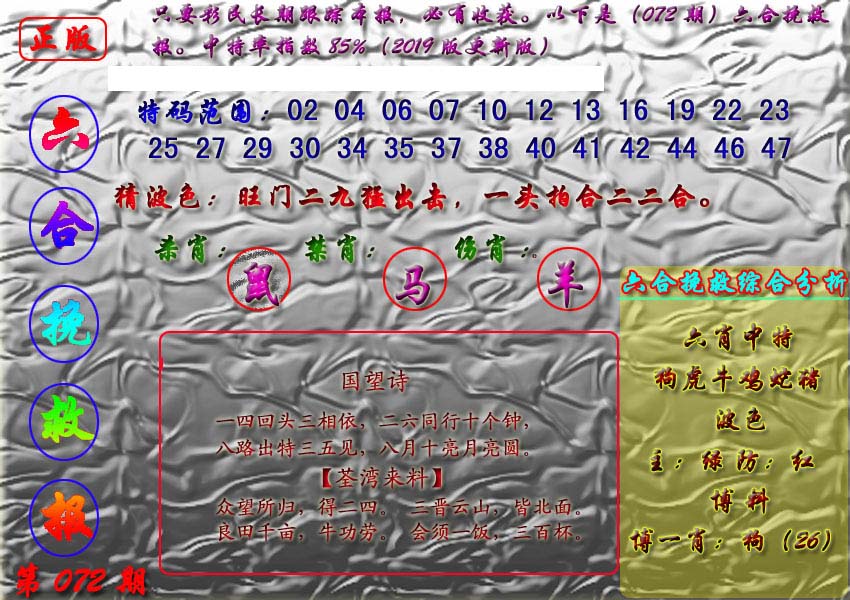 正版
只要彩民长期跟踪本报，必有收获。以下是（072期）六合挽救
报。中特率指数85%（2019版更新版）
六合挽救报
第072期
特码范围：02 04 06 07 10 12 13 16 19 22 23
25 27 29 30 34 35 37 38 40 41 42 44 46 47
猜波色：旺门二九猛出击，一头拍合二二合。
杀肖：鼠 禁肖：马 伤肖：羊。
国望诗
一四回头三相依，二六同行十个钟，
八路出特三五见，八月十亮月亮圆。
【荃湾来料】
众望所归，得二四。 三晋云山，皆北面。
良田千亩，牛功劳。 会须一饭，三百杯。
六合挽救综合分析
六肖中特
狗虎牛鸡蛇猪
波色
主：绿防：红
博料
博一肖：狗（26）